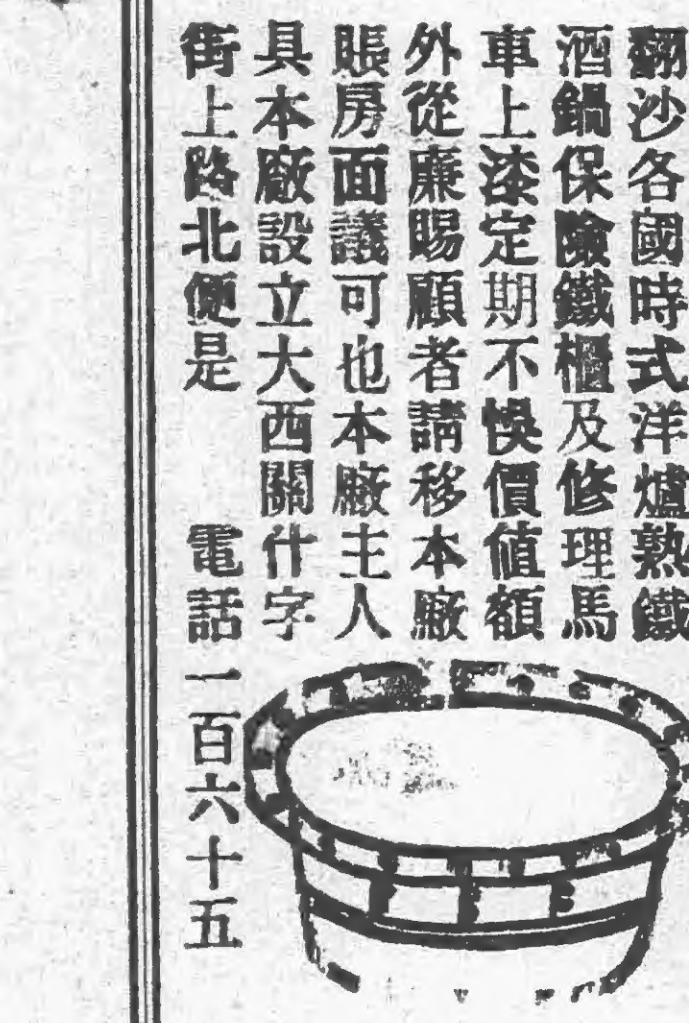 翻沙各國時式洋爐熟鐵
酒鍋保險鐵櫃及修理馬
車上漆定期不悞價値額
外從廉賜顧者請移本廠
賬房面議可也本廠主人
具本廠設立大西關什字
街上路北便是　電話一百六十五